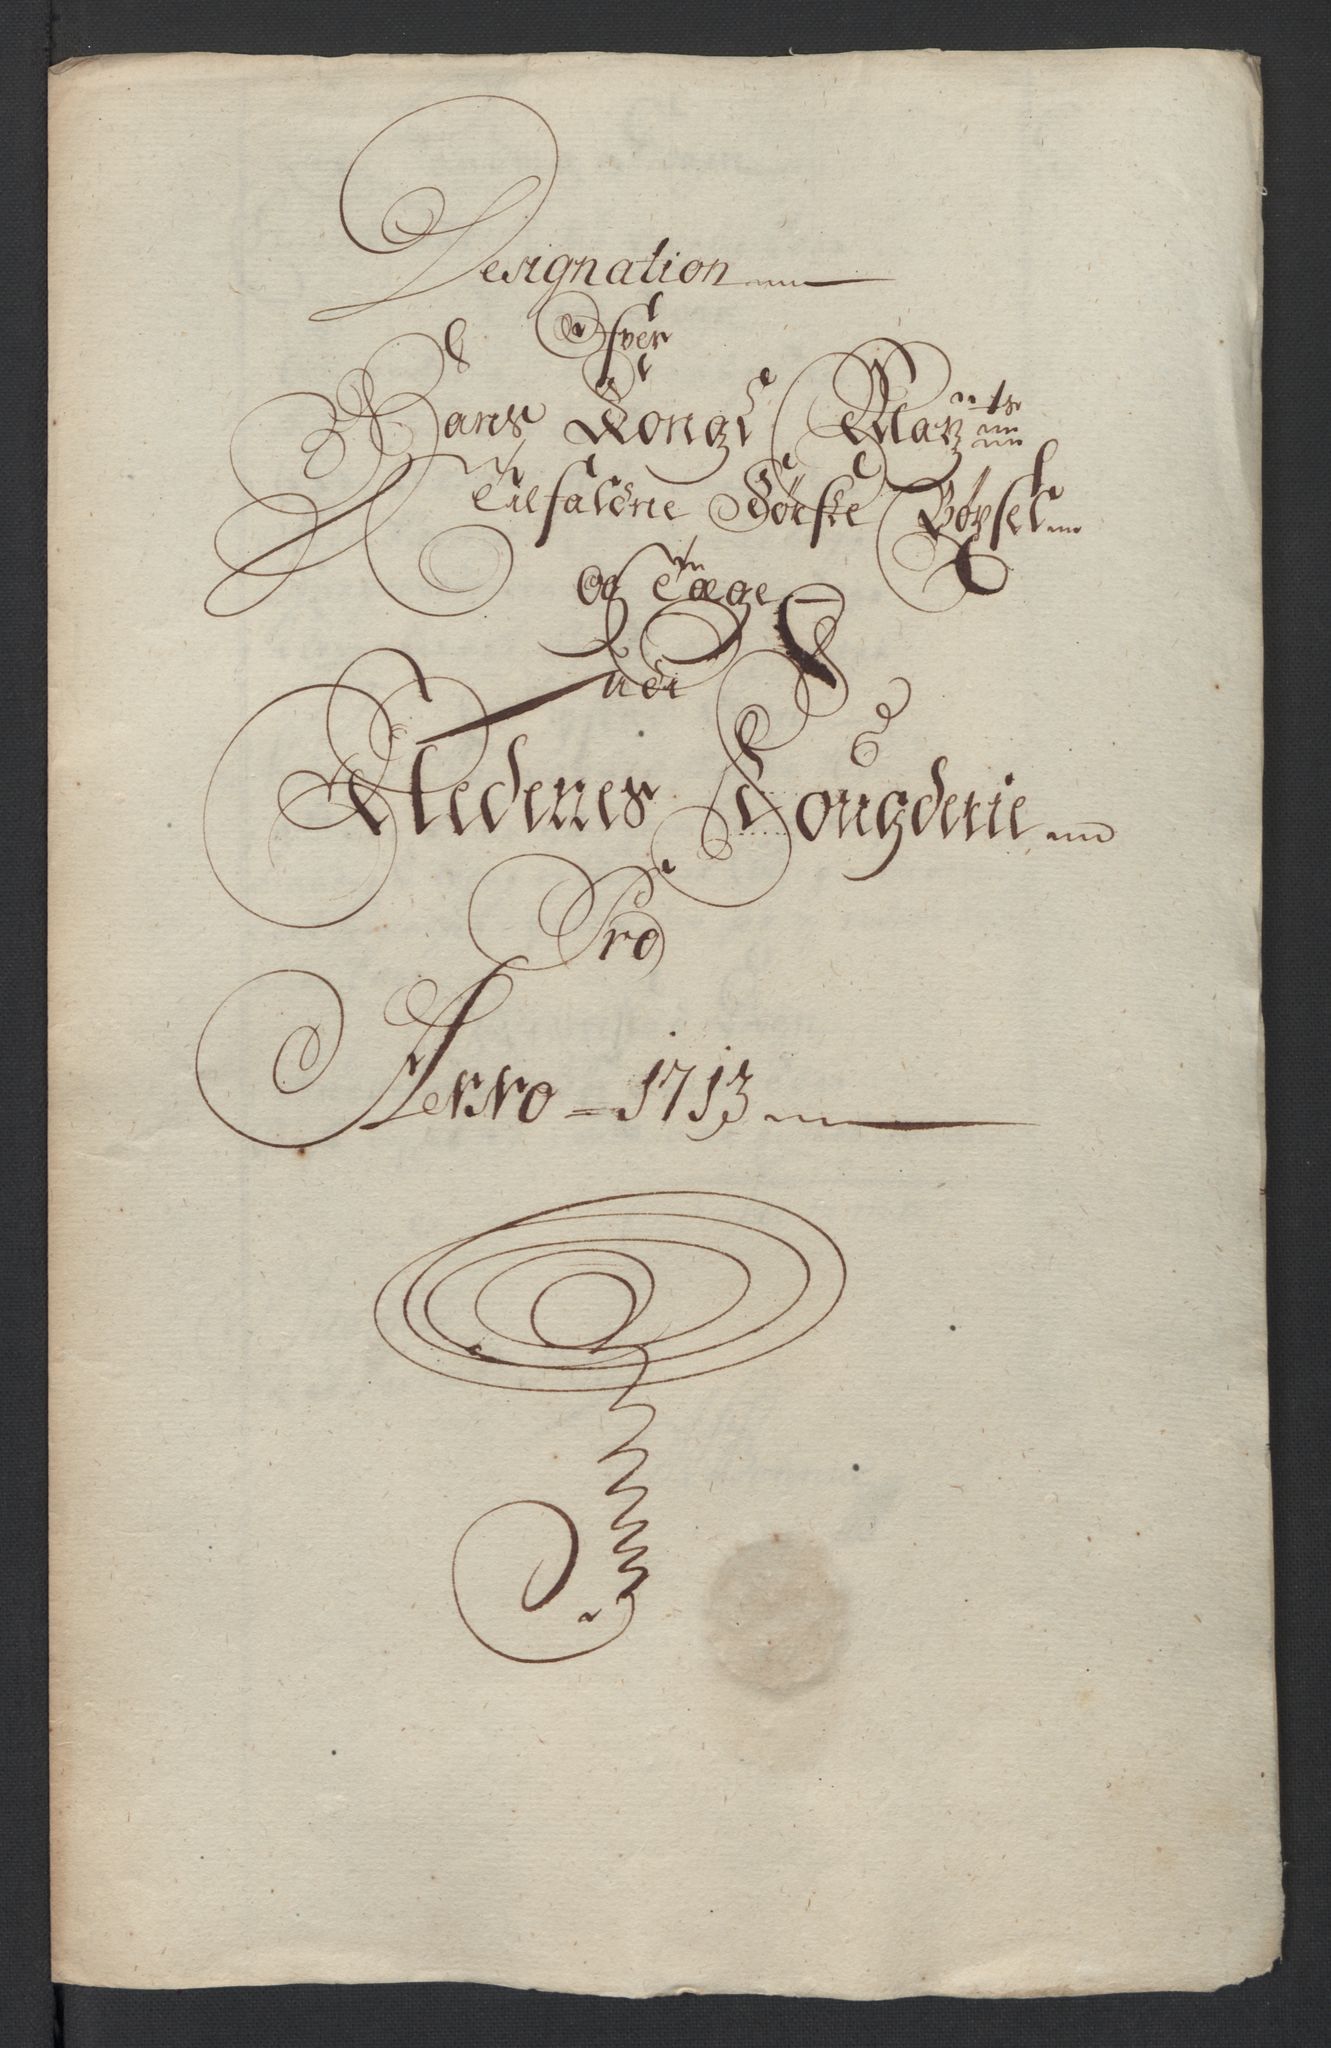 Designation
Ofver
Hans Kongl Mayts
Tilfaldne Bøxsel
og Tæge
udi
Nedenes Fougderie
Pro
Anno = 1713